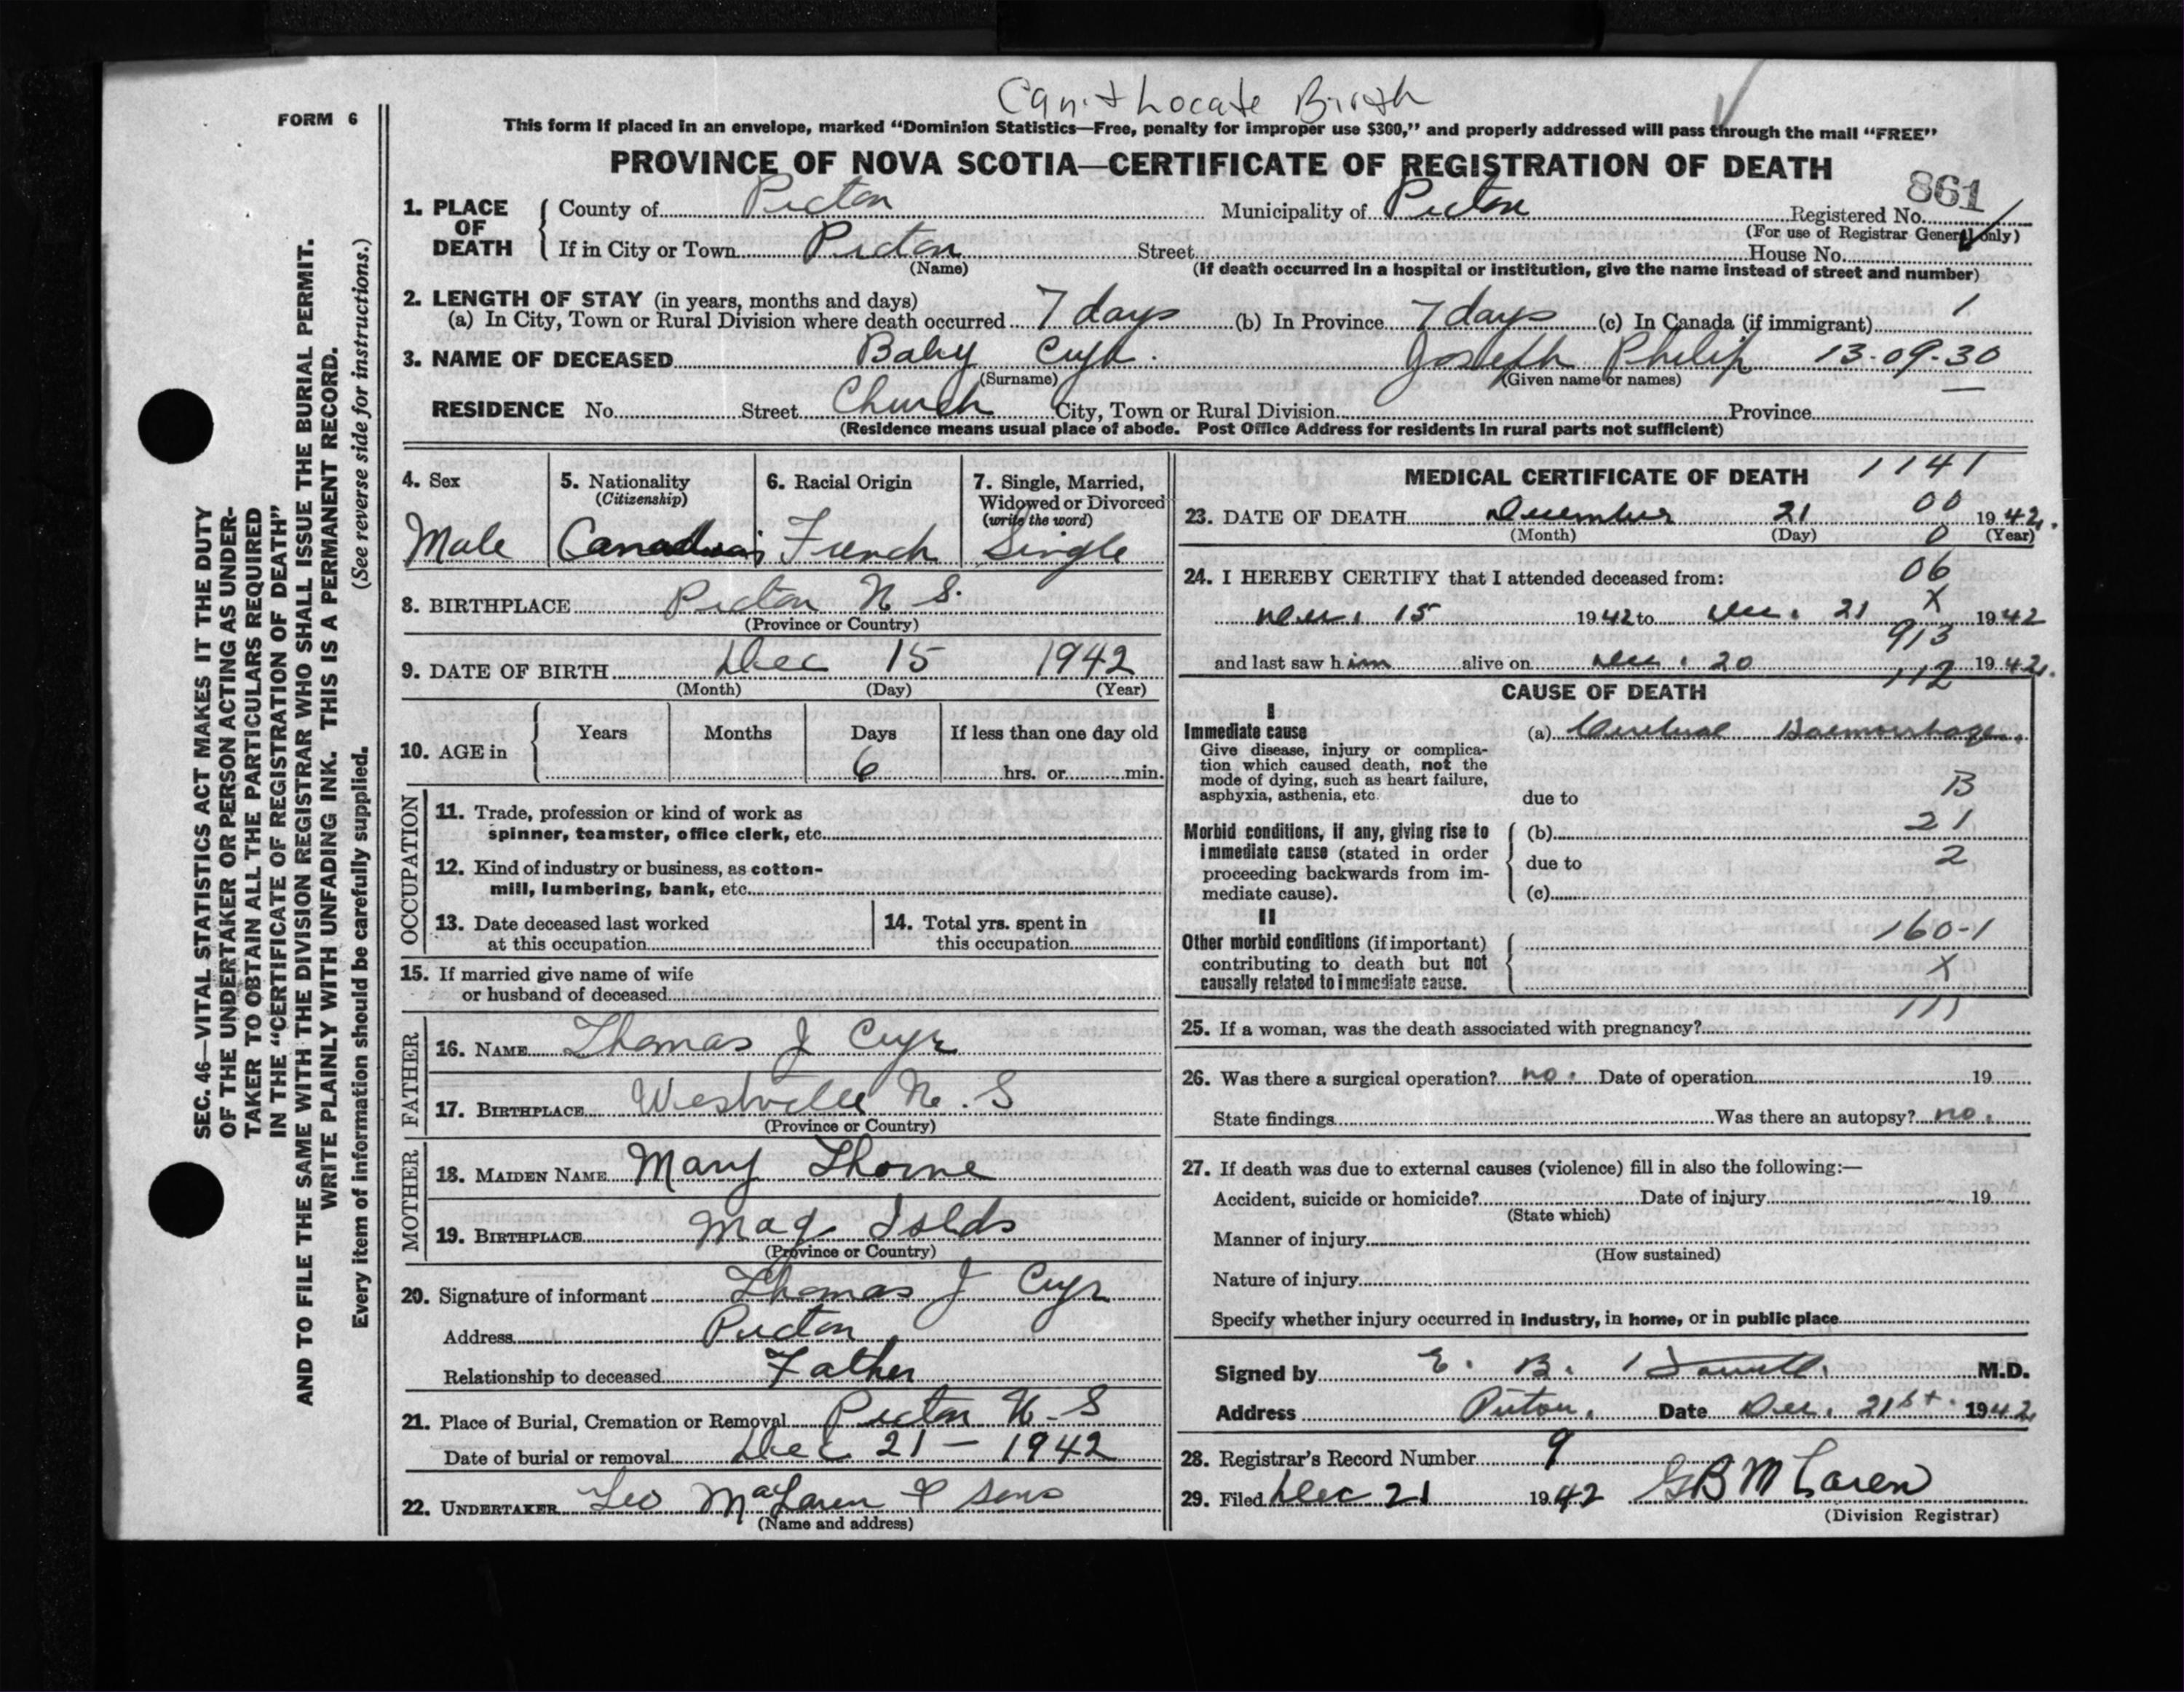 Can't Locate Birth
FORM 6
This form if placed in an envelope, marked “Dominion Statistics—Free, penalty for improper use $300,” and properly addressed will pass through the mail “FREE”
PROVINCE OF NOVA SCOTIA—CERTIFICATE OF REGISTRATION OF DEATH
861
1. PLACE OF DEATH { County of Pictou Municipality of Pictou Registered No.
(For use of Registrar General only)
If in City or Town Pictou Street House No.
(Name) (If death occurred in a hospital or institution, give the name instead of street and number)
2. LENGTH OF STAY (in years, months and days)
(a) In City, Town or Rural Division where death occurred 7 days (b) In Province 7 days (c) In Canada (if immigrant) 1
3. NAME OF DECEASED Baby Cyr. Joseph Philip 13-09-30
(Surname) (Given name or names)
RESIDENCE No. Street Church City, Town or Rural Division Province
(Residence means usual place of abode. Post Office Address for residents in rural parts not sufficient)
4. Sex 5. Nationality 6. Racial Origin 7. Single, Married,
(Citizenship) Widowed or Divorced
(write the word)
Male Canadian French Single
8. BIRTHPLACE Pictou N S.
(Province or Country)
9. DATE OF BIRTH Dec 15 1942
(Month) (Day) (Year)
10. AGE in { Years Months Days If less than one day old
6 hrs. or min.
OCCUPATION
11. Trade, profession or kind of work as
spinner, teamster, office clerk, etc.
12. Kind of industry or business, as cotton-
mill, lumbering, bank, etc.
13. Date deceased last worked 14. Total yrs. spent in
at this occupation this occupation
15. If married give name of wife
or husband of deceased
FATHER
16. NAME Thomas J Cyr
17. BIRTHPLACE Westville N. S
(Province or Country)
MOTHER
18. MAIDEN NAME Mary Thorne
19. BIRTHPLACE Mag Islds
(Province or Country)
20. Signature of informant Thomas J Cyr
Address Pictou
Relationship to deceased Father
21. Place of Burial, Cremation or Removal Pictou N-S
Date of burial or removal Dec 21 - 1942
22. UNDERTAKER Leo MacLaren & Sons
(Name and address)
MEDICAL CERTIFICATE OF DEATH 1141
00
23. DATE OF DEATH December 21 1942.
(Month) (Day) 0 (Year)
24. I HEREBY CERTIFY that I attended deceased from: 06
X
Dec. 15 1942 to Dec. 21 1942
913
and last saw him alive on Dec. 20 1942.
112
CAUSE OF DEATH
I
Immediate cause (a) Cerebral Haemorrhage.
Give disease, injury or complica-
tion which caused death, not the
mode of dying, such as heart failure,
asphyxia, asthenia, etc. due to B
Morbid conditions, if any, giving rise to (b) 21
immediate cause (stated in order due to 2
proceeding backwards from im-
mediate cause). (c)
II
Other morbid conditions (if important) 160-1
contributing to death but not X
causally related to immediate cause.
111
25. If a woman, was the death associated with pregnancy?
26. Was there a surgical operation? no. Date of operation 19
State findings Was there an autopsy? no.
27. If death was due to external causes (violence) fill in also the following:—
Accident, suicide or homicide? Date of injury 19
(State which)
Manner of injury
(How sustained)
Nature of injury
Specify whether injury occurred in industry, in home, or in public place
Signed by E. B. M.D.
Address Pictou. Date Dec. 21st. 1942
28. Registrar's Record Number 9
29. Filed Dec 21 1942 G B McLaren
(Division Registrar)
SEC. 46—VITAL STATISTICS ACT MAKES IT THE DUTY
OF THE UNDERTAKER OR PERSON ACTING AS UNDER-
TAKER TO OBTAIN ALL THE PARTICULARS REQUIRED
IN THE “CERTIFICATE OF REGISTRATION OF DEATH”
AND TO FILE THE SAME WITH THE DIVISION REGISTRAR WHO SHALL ISSUE THE BURIAL PERMIT.
WRITE PLAINLY WITH UNFADING INK. THIS IS A PERMANENT RECORD.
Every item of information should be carefully supplied. (See reverse side for instructions.)